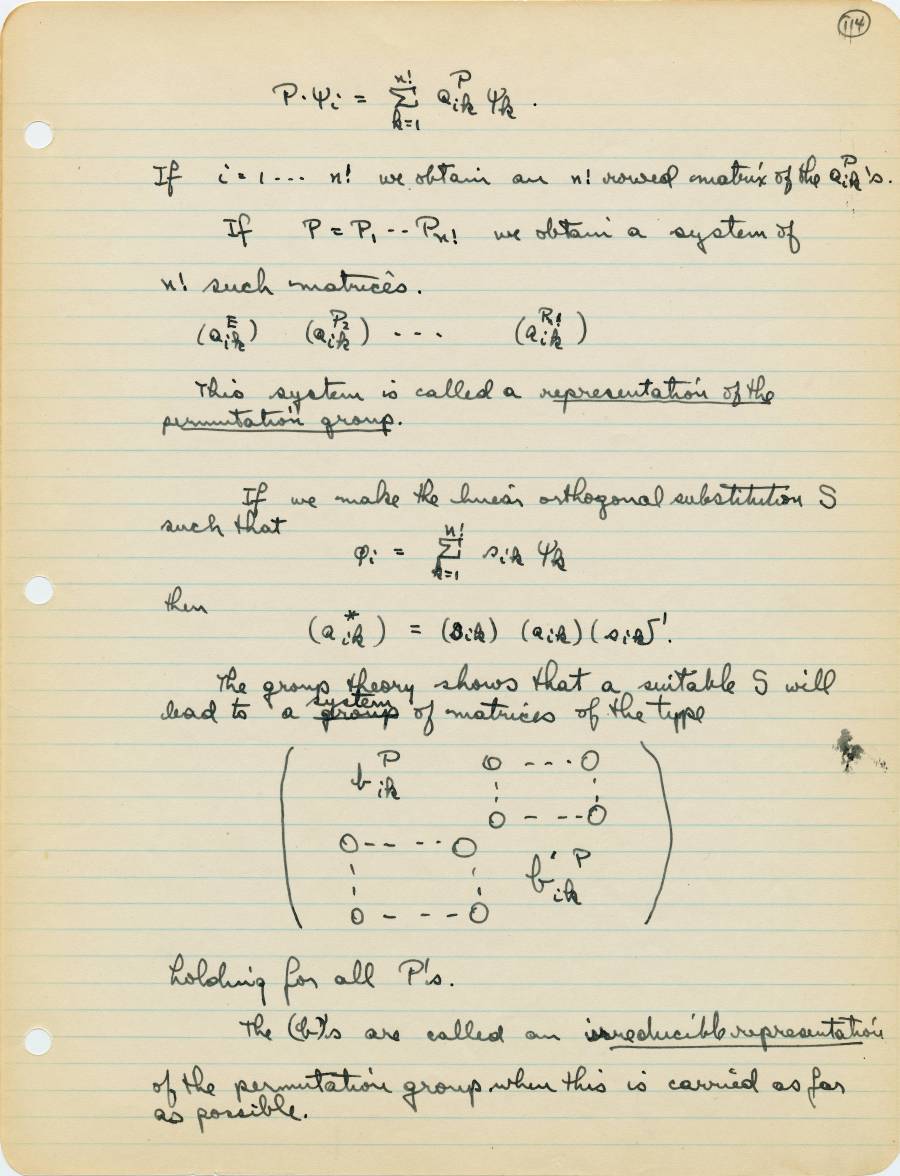 114
P·ψᵢ = Σ_{k=1}^{n!} a_{ik}^P ψ_k .
If i = 1 ... n! we obtain an n! rowed matrix of the a_{ik}^P's.
If P = P₁ -- P_{n!} we obtain a system of
n! such matrices.
(a_{ik}^E) (a_{ik}^{P₂}) ... (a_{ik}^{P_{n!}})
This system is called a representation of the
permutation group.
If we make the linear orthogonal substitution S
such that
φᵢ = Σ_{k=1}^{n!} s_{ik} ψ_k
then
(a*_{ik}) = (s_{ik}) (a_{ik}) (s_{ik})^{-1}.
The group theory shows that a suitable S will
system
lead to a group of matrices of the type
b_{ik}^P 0 - - - · 0
0 - - - 0
0 - - - · · 0
b'_{ik}^P
0 - - - - 0
holding for all P's.
The (b)'s are called an irreducible representation
of the permutation group when this is carried as far
as possible.